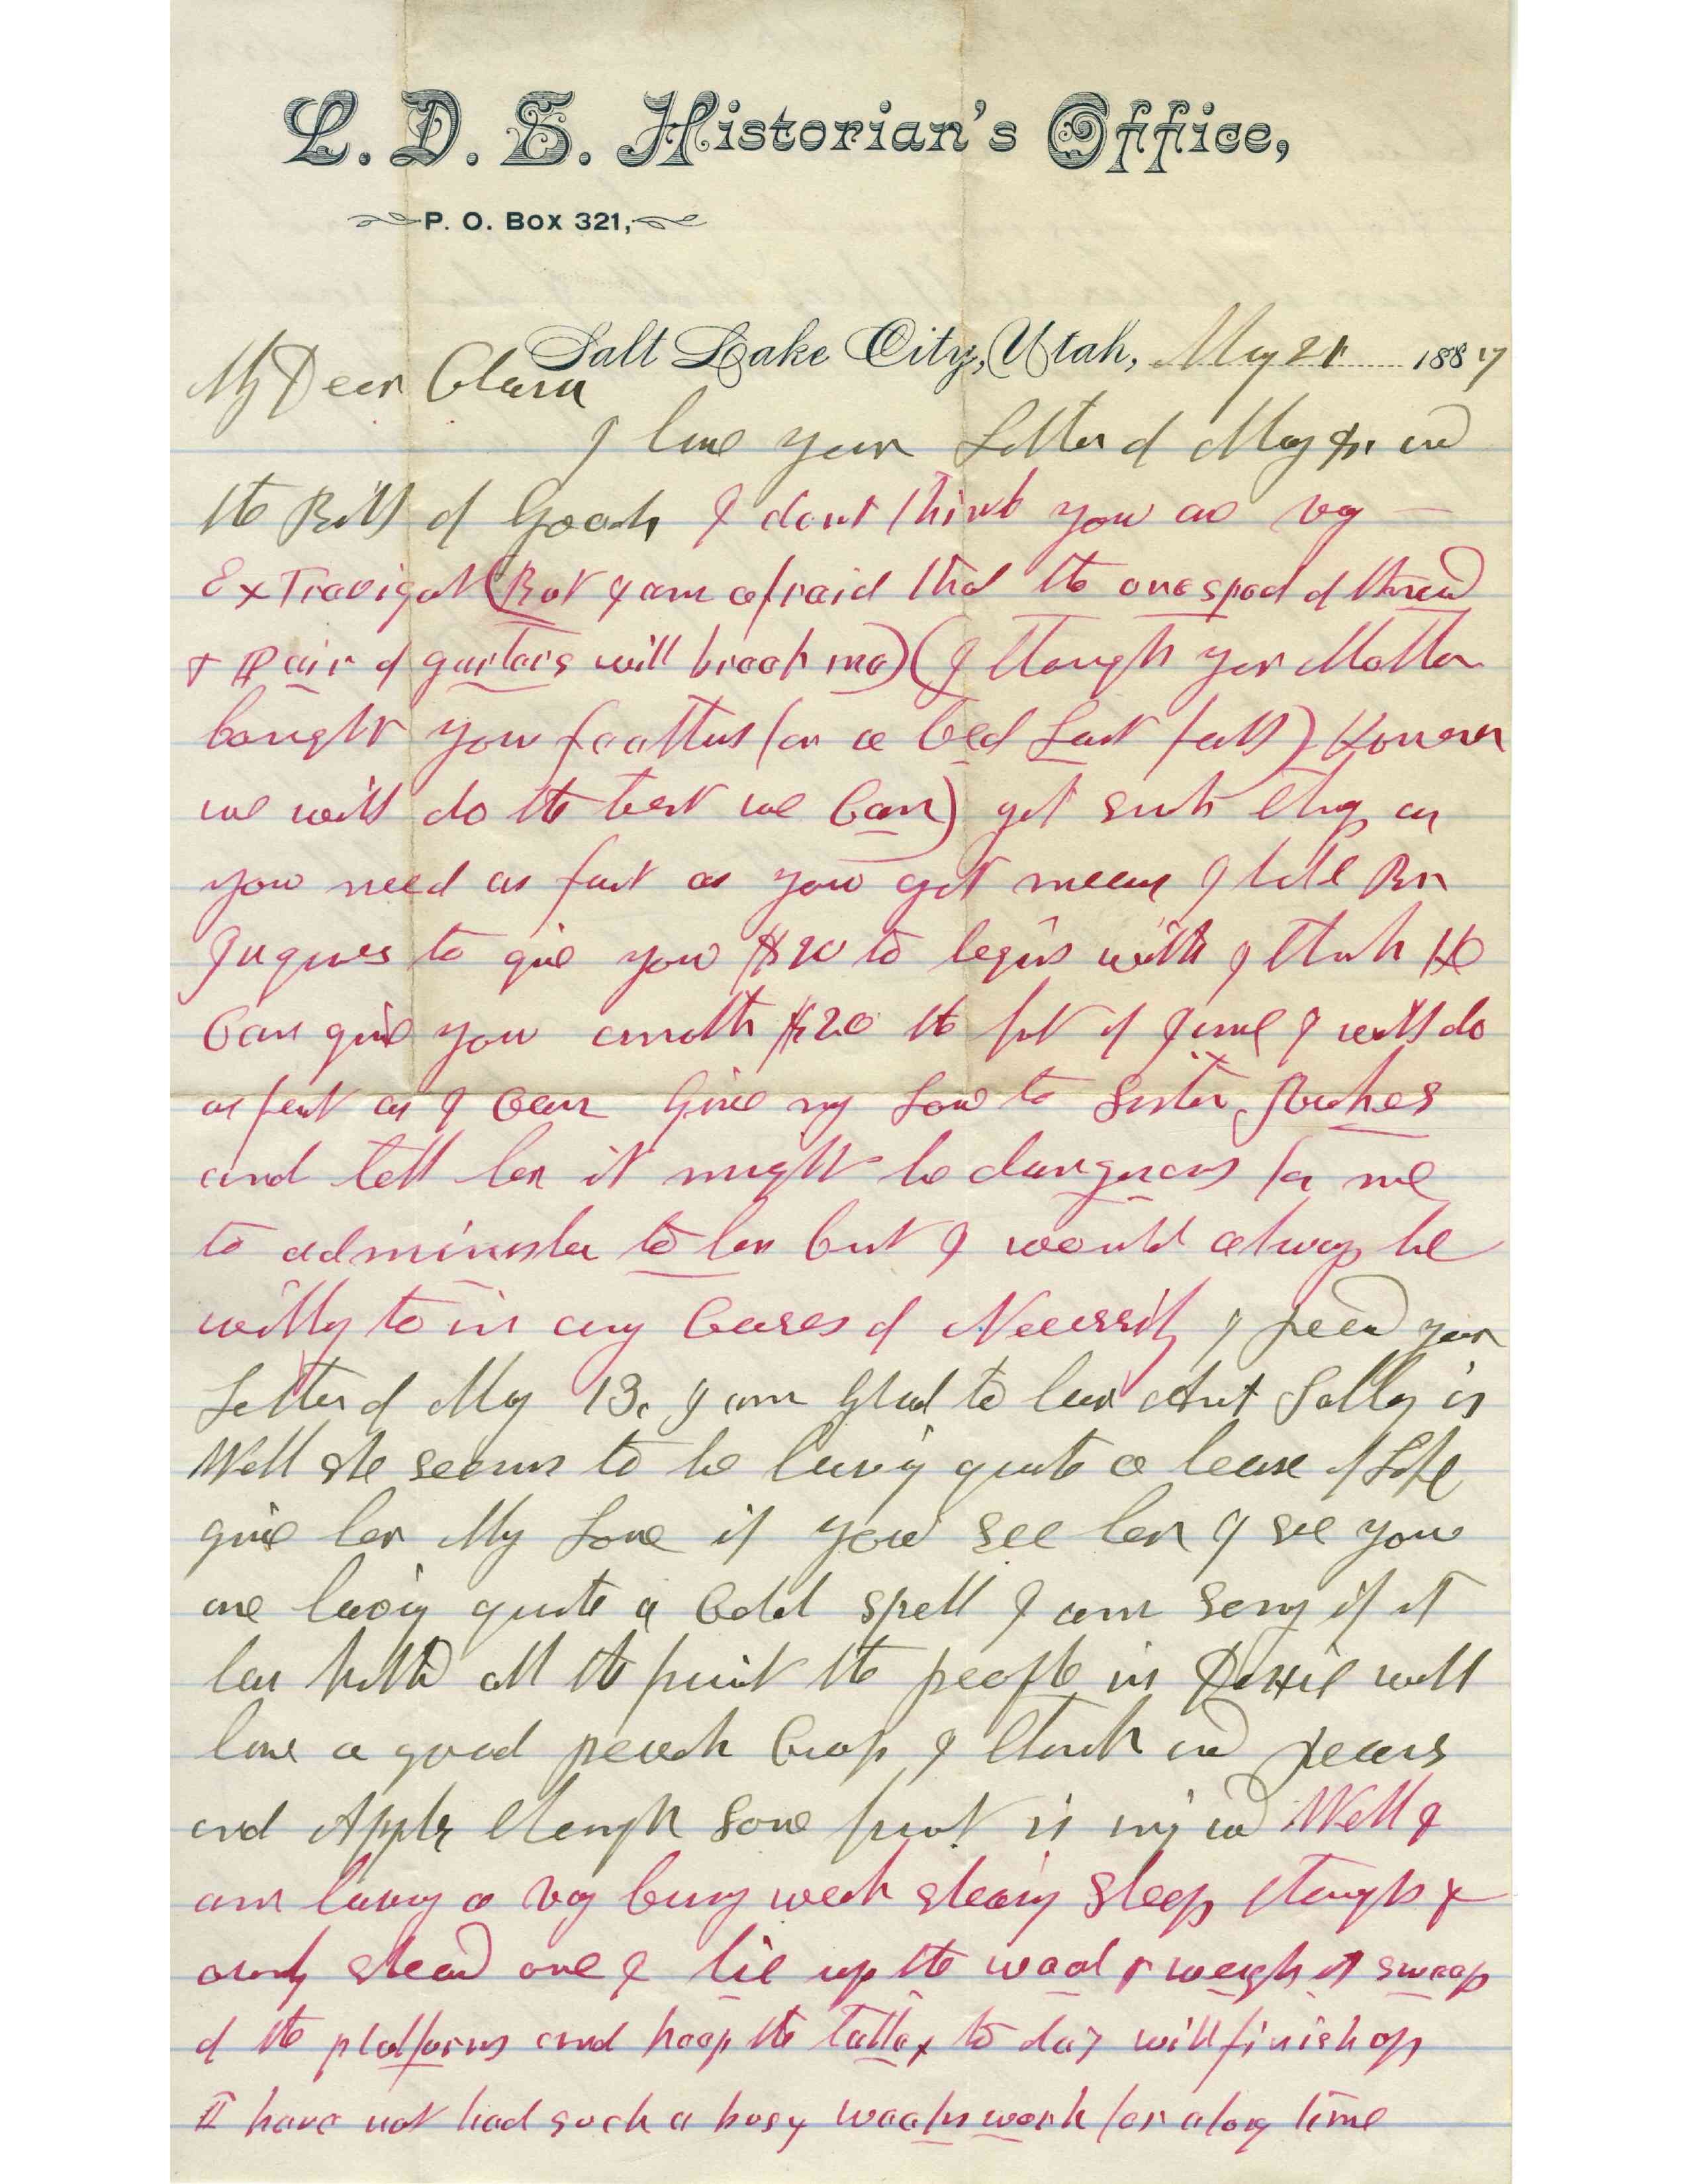 L. D. S. Historian's Office,
P. O. Box 321,
Salt Lake City, Utah, May 21 1887
My Dear Clara
I have your Letter of May and
the Bill of Goods I dont think you are very
ExTravigat (But I am afraid that the one spool of thread
& Pair of garters will break me) (I though your Mother
bought you feathers for a bed Last fall) However
we will do the best we Can) get such things as
you need as fast as you get means I told Br
Jaques to give you $20 to begin with I think He
Can give you another $20 the first of June I will do
as fast as I Can Give my Love to Sister
and tell her it might be dangerous for me
to administer to her but I would always be
willing to in any Cases of Necessity I recd your
Letter of May 13. I am Glad to hear Aunt Sally is
Well she seems to be having quite a lease of Life
give her My Love if you see her I see you
are having quite a Cold spell I am sorry if it
has killed all the fruit the people in Dixie will
have a good peach Crop I think and pears
and Apples though some fruit is injurd Well I
am having a very busy week shearing Sheep though I
ownly sheard one I tie up the wool & weigh it sweep
of the platforms and keep the talley to day will finish up
I have not had such a busy weaks work for a long time